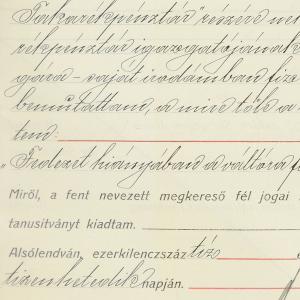 Takarékpénztár" részére
rékpénztár igazgatójának
gára - saját irodámban
bemutattam, a mire tőle a
tem:
"Fedezet hiányában a váltóra
Miről, a fent nevezett megkereső fél jogai
tanusitványt kiadtam.
Alsólendván, ezerkilenczszáz tíz
tizenhetedik napján.